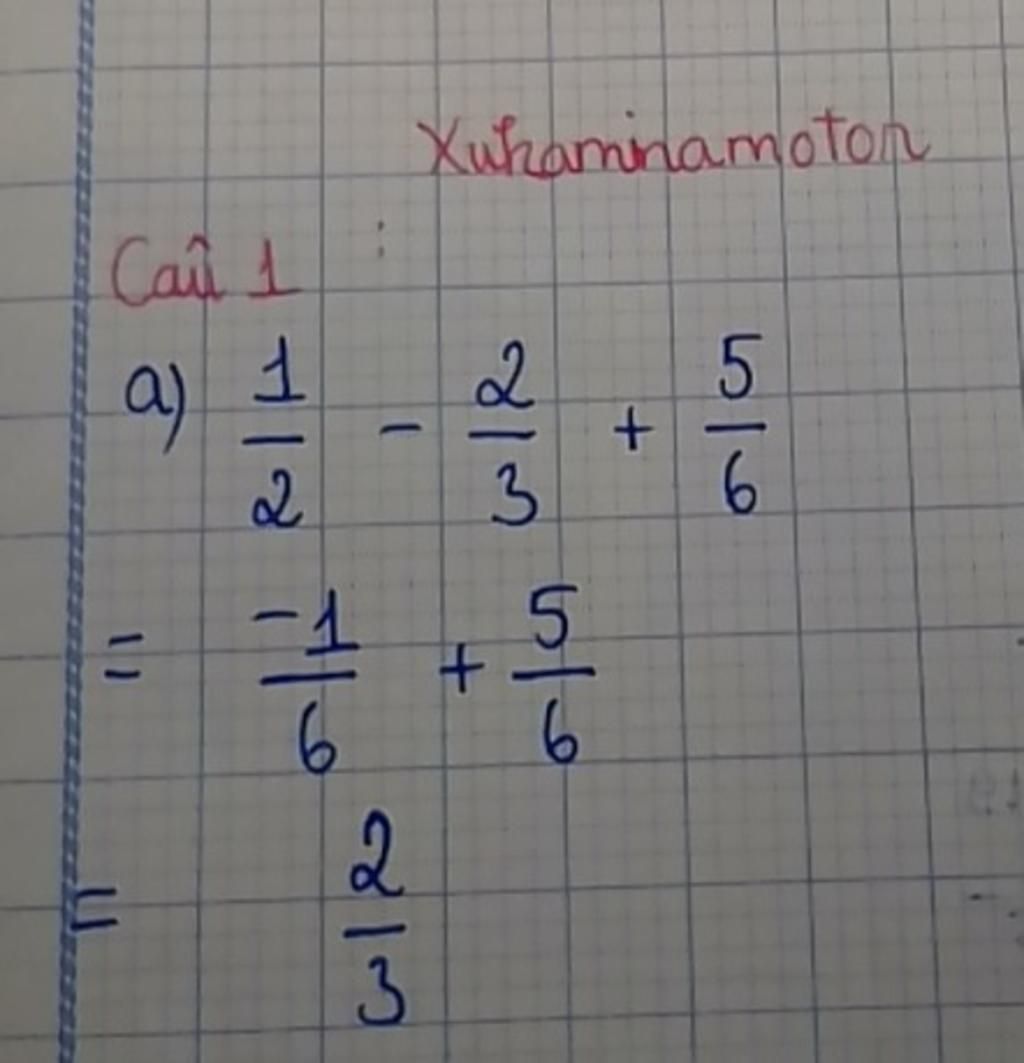 Xukaminamoton
Câu 1 :
a) 1/2 - 2/3 + 5/6
= -1/6 + 5/6
= 2/3